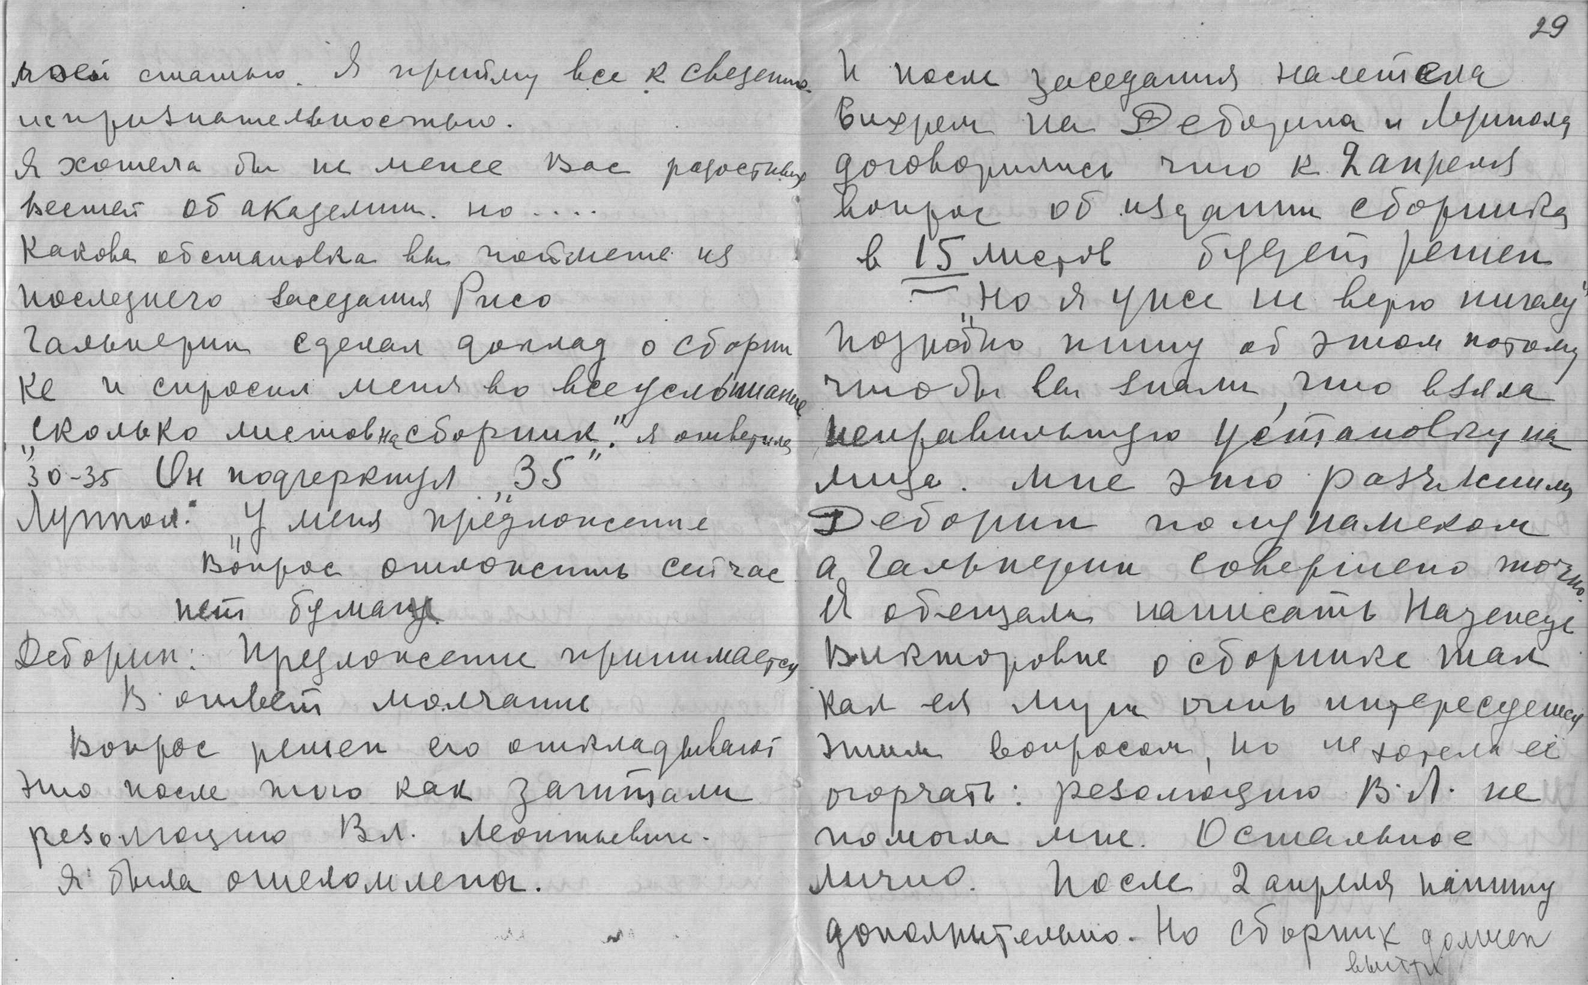 моей статью. Я приму все к сведению
и с признательностью.
Я хотела бы не менее Вас радостных
вестей об академии. но ....
Какова обстановка вы поймете из
последнего заседания Рисо
Гальперин сделал доклад о сборни
ке и спросил меня во всеуслышание
„сколько листов на сборник." я ответила
„30-35 Он подчеркнул „35"
Луппол: У меня предложение
„Вопрос отложить сейчас
нет бумаги.
Деборин: Предложение принимается
В ответ молчание
Вопрос решен его откладывают
это после того как зачитали
резолюцию Вл. Леонтьевича.
Я была ошеломлена.
29
И после заседания налетела
вихрем на Деборина и Луппола
договорились что к 2 апреля
вопрос об издании сборника
в 15 листов будет решен
„Но я уже не верю ничему"
Подробно пишу об этом потому
чтобы вы знали, что взяла
неправильную установку на
лица. мне это разъяснили
Деборин полунамеком
а Гальперин совершено точно.
Я обещала написать Надежде
Викторовне о сборнике так
как ея муж очень интересуется
этим вопросом, но не хотела её
огорчать: резолюцию В.Л. не
помогла мне. Остальное
лично. После 2 апреля напишу
дополнительно. Но сборник должен
выйти